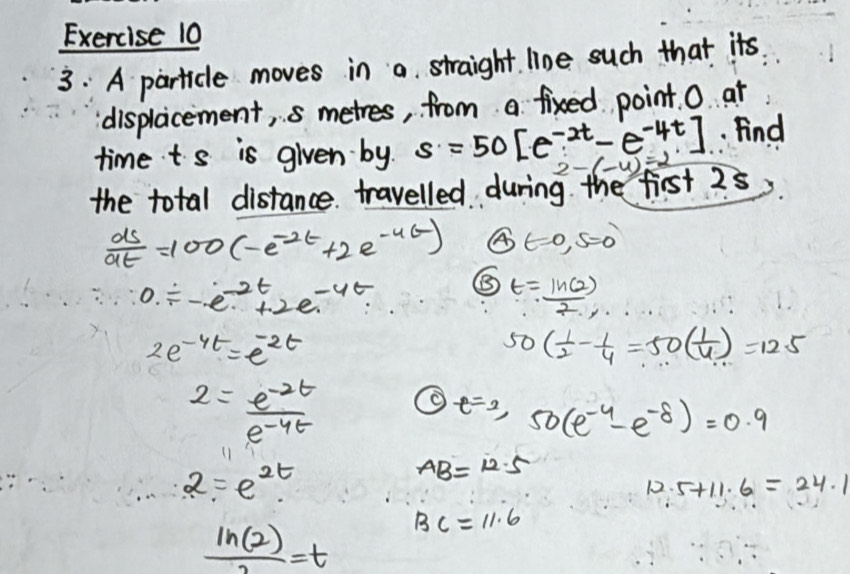 Exercise 10
3. A particle moves in a straight line such that its
displacement, s metres, from a fixed point O at
time t s is given by s = 50 [e^-2t - e^-4t]. Find
2-(-4)=2
the total distance travelled during the first 2s.
ds/dt = 100(-e^-2t + 2e^-4t)
0 = -e^-2t + 2e^-4t
2e^-4t = e^-2t
2 = e^-2t / e^-4t
2 = e^2t
ln(2)/2 = t
Ⓐ t=0, s=0
Ⓑ t = ln(2)/2,
50(1/2 - 1/4 = 50(1/4) = 12.5
Ⓒ t=2, 50(e^-4 - e^-8) = 0.9
AB = 12.5
BC = 11.6
12.5+11.6 = 24.1